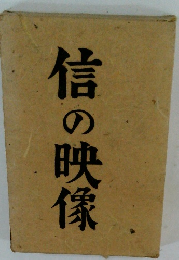 信の映像